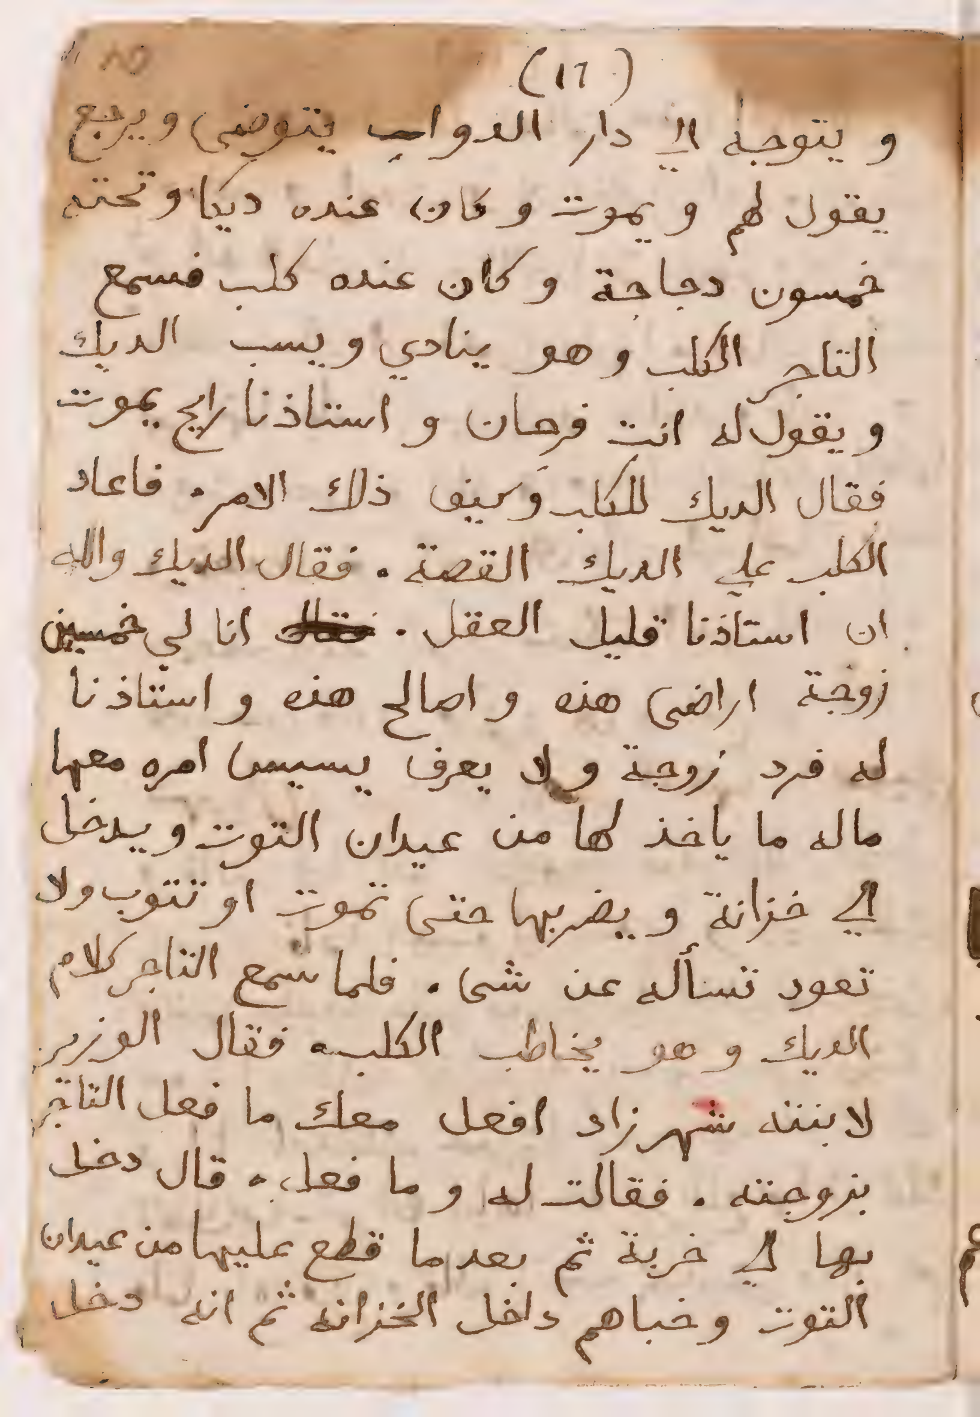 (١٦)
و يتوجه الي دار الدواب يتوضى ويرجع
يقول لهم و يموت و كان عنده ديكا وتحته
خمسون دجاجة و كان عنده كلب فسمع
التاجر الكلب و هو ينادي ويسب الديك
و يقول له انت فرحان و استاذنا رايح يموت
فقال الديك للكلب وكيف ذلك الامر. فاعاد
الكلب علي الديك القصة. فقال الديك والله
ان استاذنا قليل العقل. فقال انا لي خمسين
زوجة اراضى هذه و اصالح هذه و استاذنا
له فرد زوجة ولا يعرف يسيس امره معها
ماله ما ياخذ لها من عيدان التوت ويدخل
الي خزانة و يضربها حتى تموت او تتوب ولا
تعود تسأله عن شى. فلما سمع التاجر كلام
الديك و هو يخاطب الكلب. فقال الوزير
لابنته شهرزاد افعل معك ما فعل التاجر
بزوجته. فقالت له و ما فعل. قال دخل
بها الي خربة ثم بعد ما قطع عليها من عيدان
التوت وخباهم داخل الخزانه ثم انه دخل